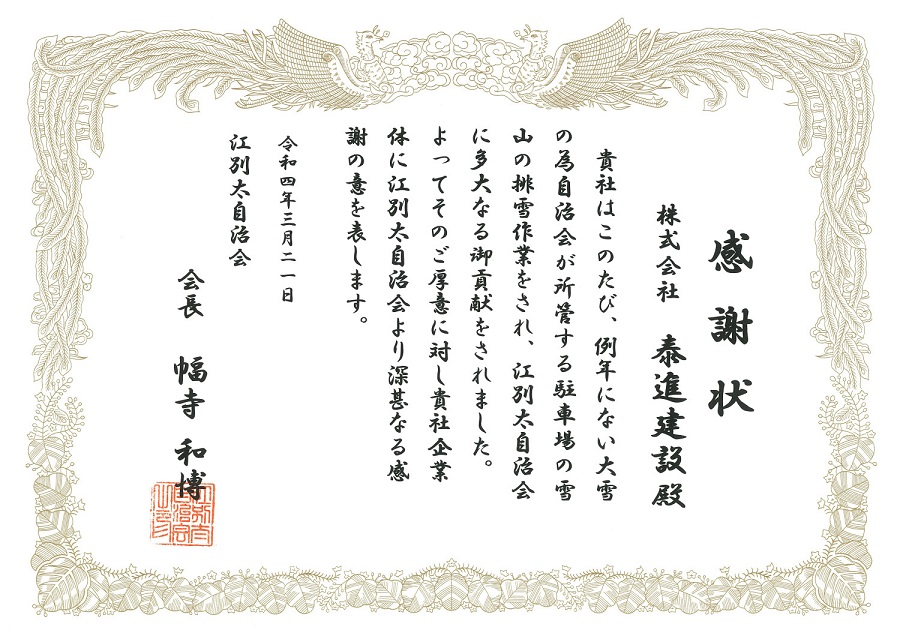 感謝状
株式会社 泰進建設殿
貴社はこのたび、例年にない大雪
の為自治会が所管する駐車場の雪
山の排雪作業をされ、江別太自治会
に多大なる御貢献をされました。
よってそのご厚意に対し貴社企業
体に江別太自治会より深甚なる感
謝の意を表します。
令和四年三月二一日
江別太自治会
会長 幅寺 和博
江別太
自治会
之印